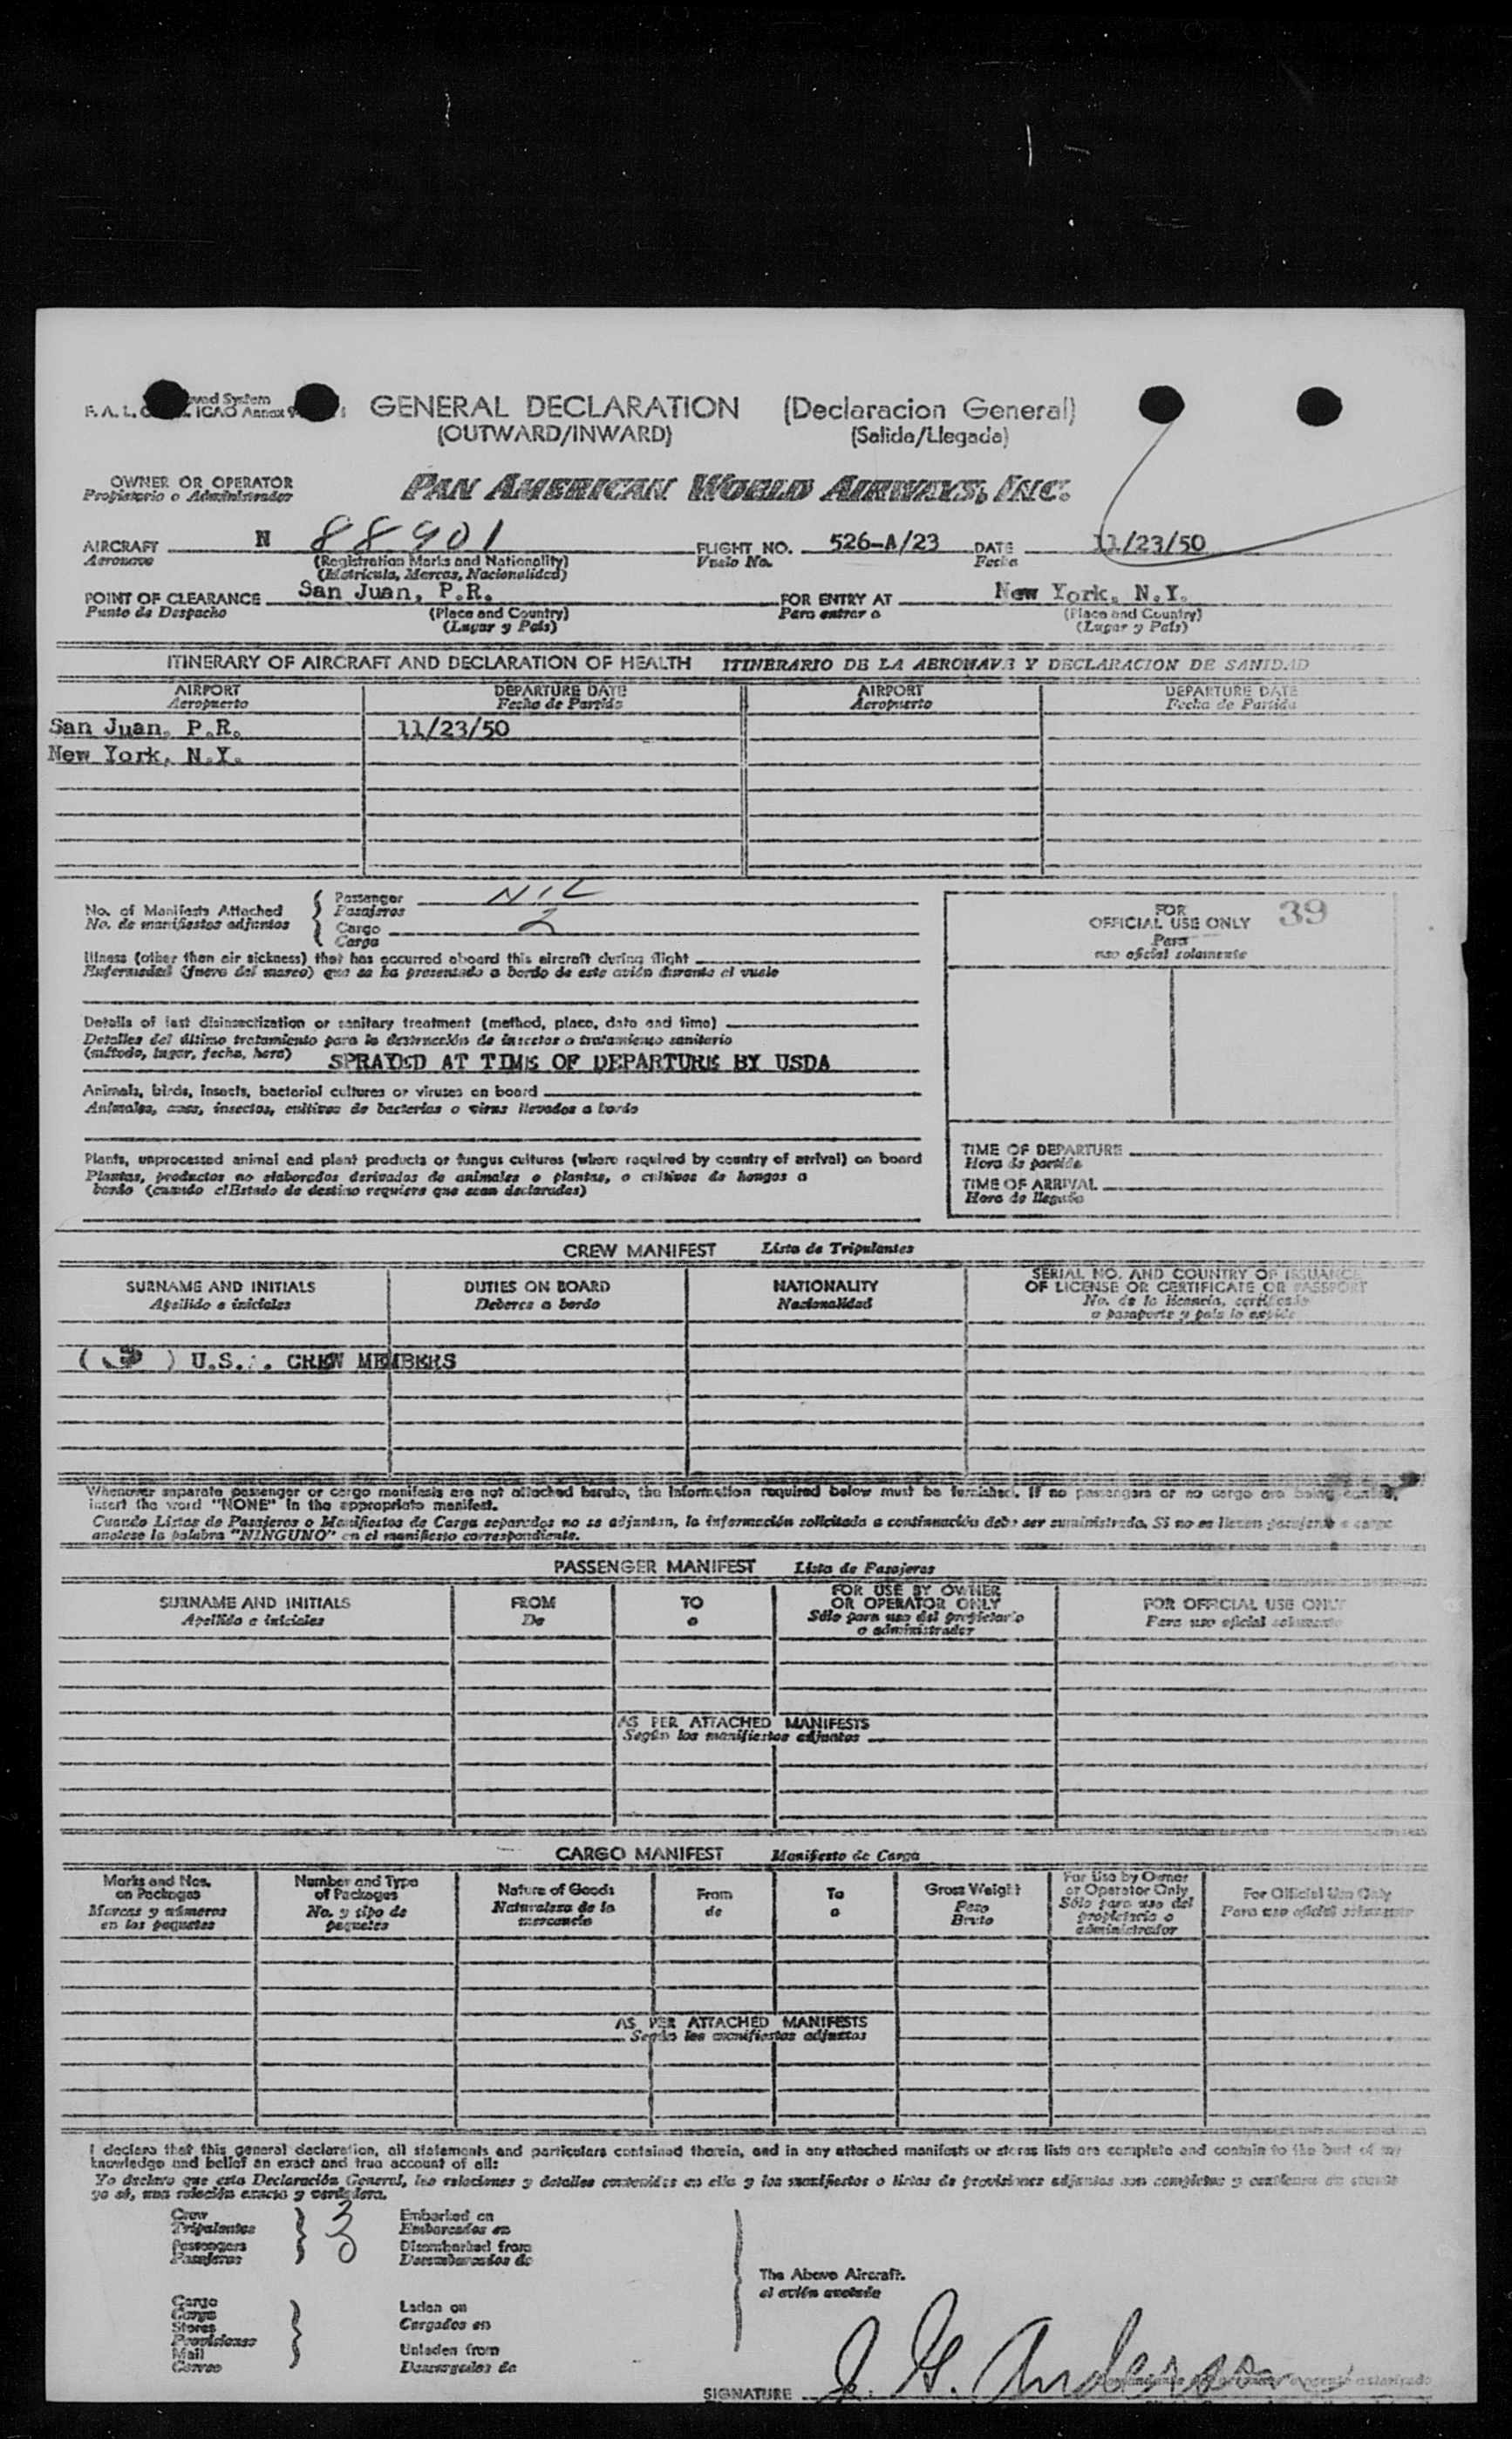 F. A. L.
ICAO Annex 9
GENERAL DECLARATION (Declaracion General)
(OUTWARD/INWARD) (Salida/Llegada)
OWNER OR OPERATOR
Propietario o Administrador
PAN AMERICAN WORLD AIRWAYS, INC.
AIRCRAFT N 88901 FLIGHT NO. 526-A/23 DATE 11/23/50
Aeronave (Registration Marks and Nationality) Vuelo No. Fecha
(Matricula, Marcas, Nacionalidad)
POINT OF CLEARANCE San Juan, P.R. FOR ENTRY AT New York, N.Y.
Punto de Despacho (Place and Country) Para entrar a (Place and Country)
(Lugar y País) (Lugar y País)
ITINERARY OF AIRCRAFT AND DECLARATION OF HEALTH ITINERARIO DE LA AERONAVE Y DECLARACION DE SANIDAD
AIRPORT DEPARTURE DATE AIRPORT DEPARTURE DATE
Aeropuerto Fecha de Partida Aeropuerto Fecha de Partida
San Juan, P.R. 11/23/50
New York, N.Y.
No. of Manifests Attached
No. de manifiestos adjuntos
Passenger NIL
Pasajeros
Cargo 2
Carga
Illness (other than air sickness) that has occurred aboard this aircraft during flight
Enfermedad (fuera del mareo) que se ha presentado a bordo de este avión durante el vuelo
Details of last disinsectization or sanitary treatment (method, place, date and time)
Detalles del último tratamiento para la destrucción de insectos o tratamiento sanitario
(método, lugar, fecha, hora) SPRAYED AT TIME OF DEPARTURE BY USDA
Animals, birds, insects, bacterial cultures or viruses on board
Animales, aves, insectos, cultivos de bacterias o virus llevados a bordo
Plants, unprocessed animal and plant products or fungus cultures (where required by country of arrival) on board
Plantas, productos no elaborados derivados de animales o plantas, o cultivos de hongos a
bordo (cuando el Estado de destino requiera que sean declarados)
FOR
OFFICIAL USE ONLY 39
Para
uso oficial solamente
TIME OF DEPARTURE
Hora de partida
TIME OF ARRIVAL
Hora de llegada
CREW MANIFEST Lista de Tripulantes
SURNAME AND INITIALS DUTIES ON BOARD NATIONALITY SERIAL NO. AND COUNTRY OF ISSUANCE
OF LICENSE OR CERTIFICATE OR PASSPORT
Apellido e iniciales Deberes a bordo Nacionalidad No. de la licencia, certificado
o pasaporte y país lo expide
( 3 ) U.S. . CREW MEMBERS
Whenever separate passenger or cargo manifests are not attached hereto, the information required below must be furnished. If no passengers or no cargo are being carried,
insert the word "NONE" in the appropriate manifest.
Cuando Listas de Pasajeros o Manifiestos de Carga separados no se adjuntan, la información solicitada a continuación debe ser suministrada. Si no se llevan pasajeros o carga
anotese la palabra "NINGUNO" en el manifiesto correspondiente.
PASSENGER MANIFEST Lista de Pasajeros
SURNAME AND INITIALS FROM TO FOR USE BY OWNER
OR OPERATOR ONLY FOR OFFICIAL USE ONLY
Apellido e iniciales De a Sólo para uso del propietario
o administrador Para uso oficial solamente
AS PER ATTACHED MANIFESTS
Según los manifiestos adjuntos
CARGO MANIFEST Manifiesto de Carga
Marks and Nos.
on Packages
Marcas y números
en los paquetes
Number and Type
of Packages
No. y tipo de
paquetes
Nature of Goods
Naturaleza de la
mercancía
From
de
To
a
Gross Weight
Peso
Bruto
For Use by Owner
or Operator Only
Sólo para uso del
propietario o
administrador
For Official Use Only
Para uso oficial solamente
AS PER ATTACHED MANIFESTS
Según los manifiestos adjuntos
I declare that this general declaration, all statements and particulars contained therein, and in any attached manifests or stores lists are complete and contain to the best of my
knowledge and belief an exact and true account of all:
Yo declaro que esta Declaración General, las relaciones y detalles contenidos en ella y los manifiestos o listas de provisiones adjuntas son completas y contienen
yo sé, una relación exacta y verdadera.
Crew 3 Embarked on
Tripulantes Embarcados en
Passengers 0 Disembarked from
Pasajeros Desembarcados de
The Above Aircraft.
el avión anotado
Cargo
Carga
Stores
Provisiones
Mail
Correo
Laden on
Cargados en
Unladen from
Descargados de
SIGNATURE J. H. Anderson